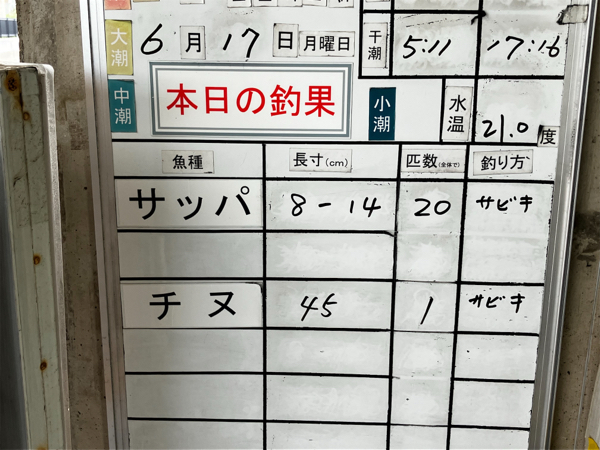 大潮 6月17日 月曜日 干潮 5:11 17:16
中潮 本日の釣果 小潮 水温 21.0度
魚種 長寸(cm) 匹数(全体で) 釣り方
サッパ 8-14 20 サビキ
チヌ 45 1 サビキ